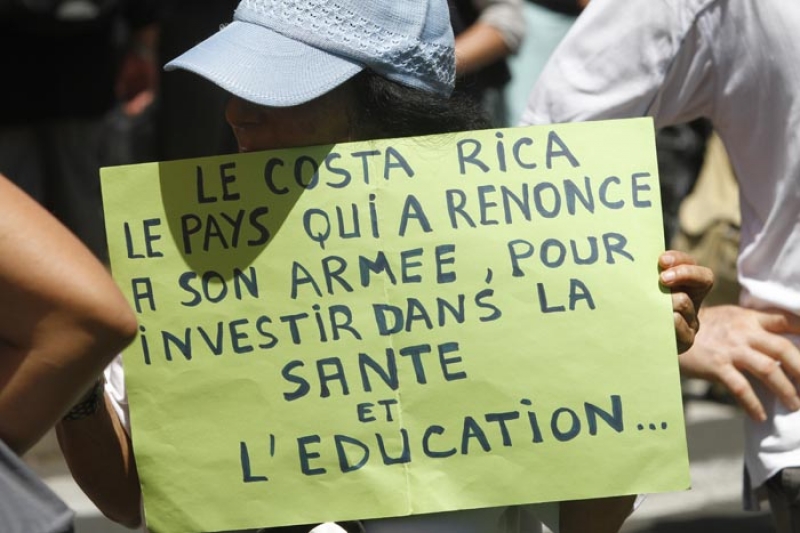 LE COSTA RICA
LE PAYS QUi A RENONCE
A SON ARMEE, POUR
iNVESTiR DANS LA
SANTE
ET
L'EDUCATiON...